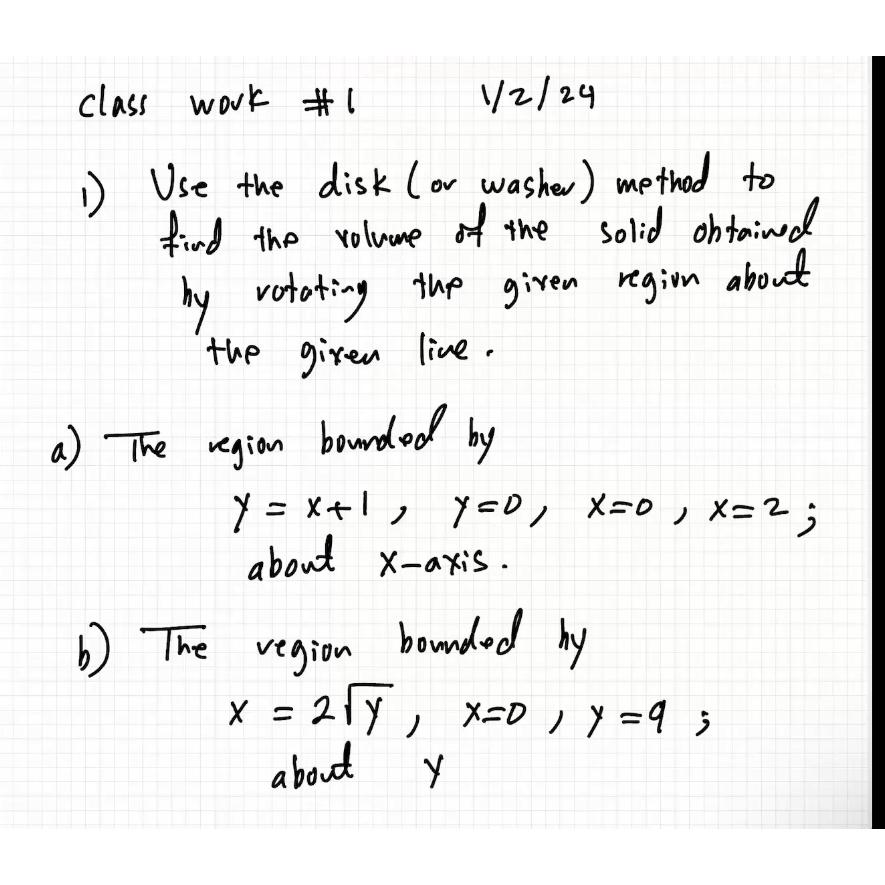 class work #1 1/2/24
1) Use the disk (or washer) method to
find the volume of the solid obtained
by rotating the given region about
the given line.
a) The region bounded by
y = x+1, y=0, x=0, x=2;
about x-axis.
b) The region bounded by
x = 2√y, x=0, y=9;
about y